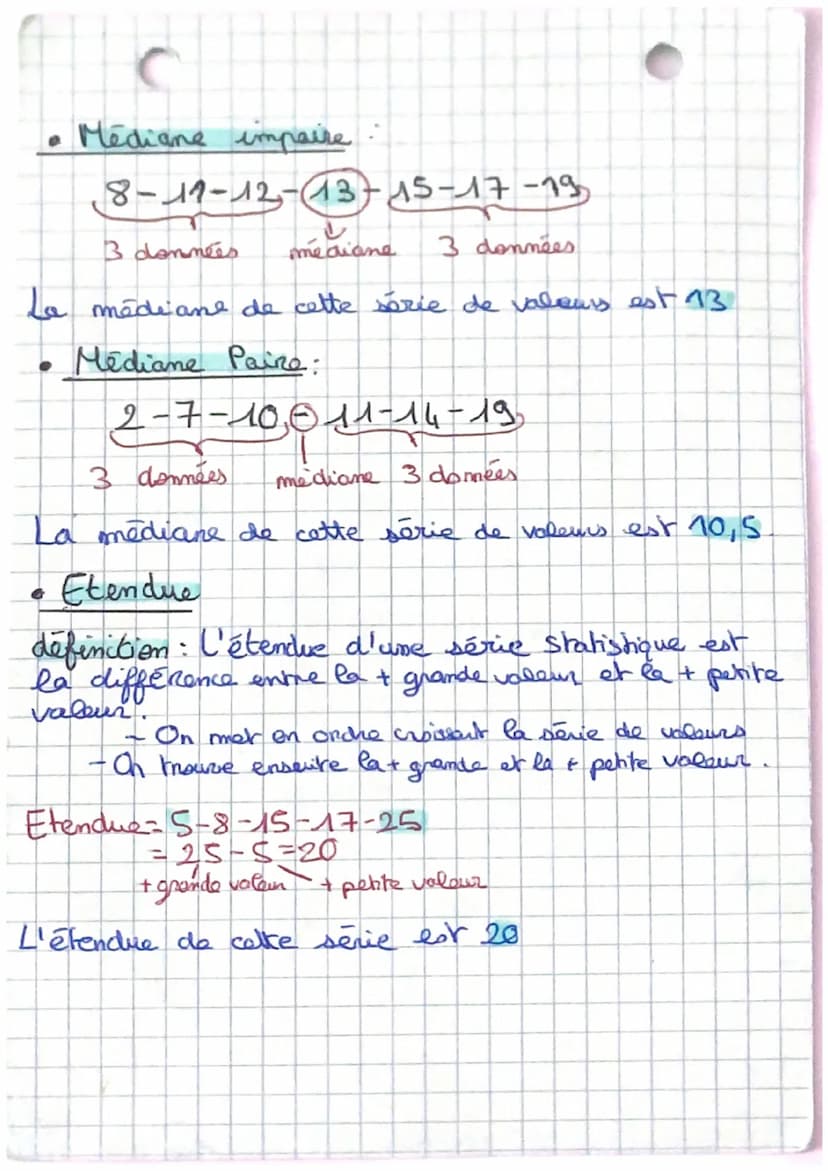 • Médiane impaire :
8-11-12-13-15-17-19
3 données médiane 3 données
La médiane de cette série de valeurs est 13
• Médiane Paire :
2-7-10-11-14-19
3 données médiane 3 données
La médiane de cette série de valeurs est 10,5
• Etendue
définition : L'étendue d'une série statistique est
la différence entre la + grande valeur et la + petite
valeur.
- On met en ordre croissant la série de valeurs
- On trouve ensuite la + grande et la + petite valeur.
Etendue = 5-8-15-17-25
= 25-5=20
+ grande valeur + petite valeur
L'étendue de cette série est 20